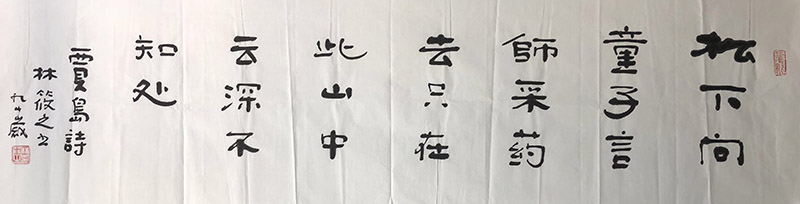 松下问
童子言
師采药
去只在
此山中
云深不
知处
賈島詩
林筱之书
九十歲